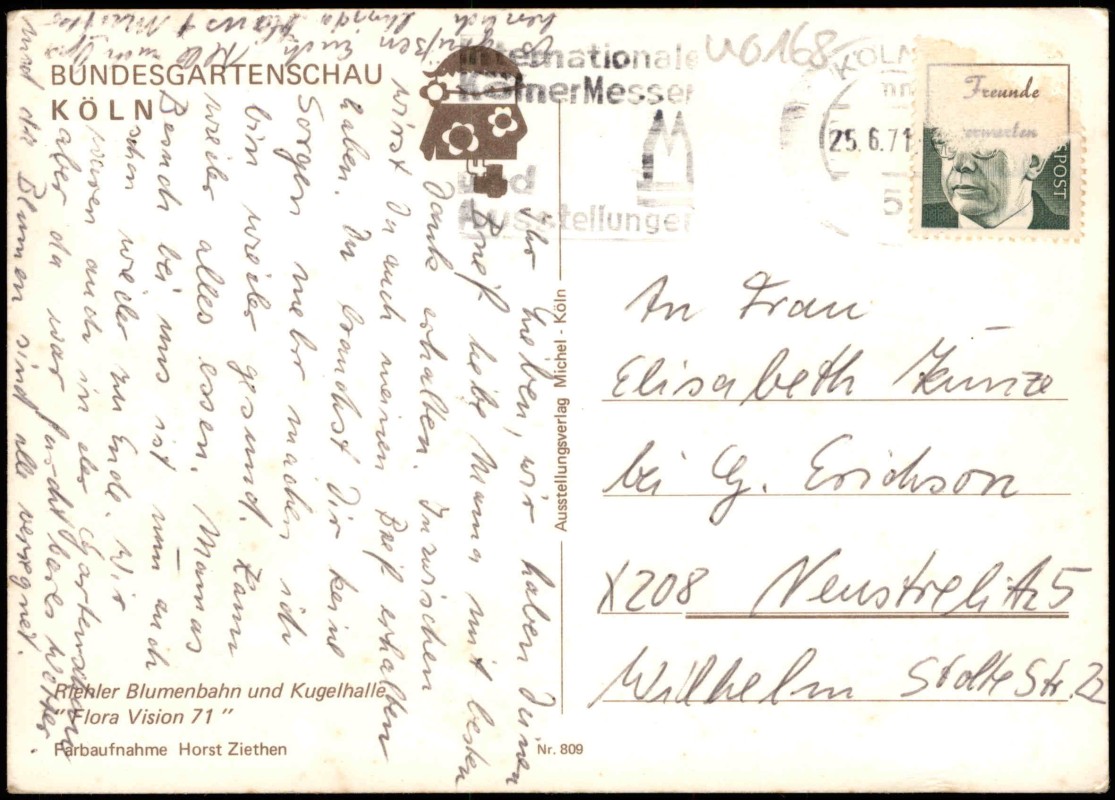 BUNDESGARTENSCHAU
KÖLN
Internationale
KölnerMessen
und
Ausstellungen
W0168
KÖLN
25.6.71
Freunde
SPOST
Ihr Lieben, wir haben Deinen
Brief liebe Mama mit besten
Dank erhalten. Inzwischen
wirst Du auch meinen Brief erhalten
haben. Du brauchst Dir keine
Sorgen mehr machen ich
bin wieder gesund. Kann
wieder alles essen. Mamas
Besuch bei uns ist nun auch
schon wieder zu Ende. Wir
waren auch in der Gartenschau
aber da war furchtbares Wetter.
und die Blumen sind alle verregnet.
Es grüßen Euch
herzlich
Riehler Blumenbahn und Kugelhalle
"Flora Vision 71"
Farbaufnahme Horst Ziethen
Nr. 809
Ausstellungsverlag Michel - Köln
An Frau
Elisabeth Kunze
bei G. Erichson
X208 Neustrelitz 5
Wilhelm Stolte Str. 22